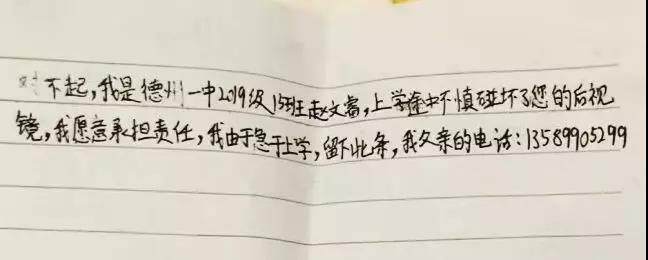 对不起,我是德州一中2019级15班赵文睿,上学途中不慎碰坏了您的后视
镜,我愿意承担责任,我由于急于上学,留下此条,我父亲的电话:13589905299